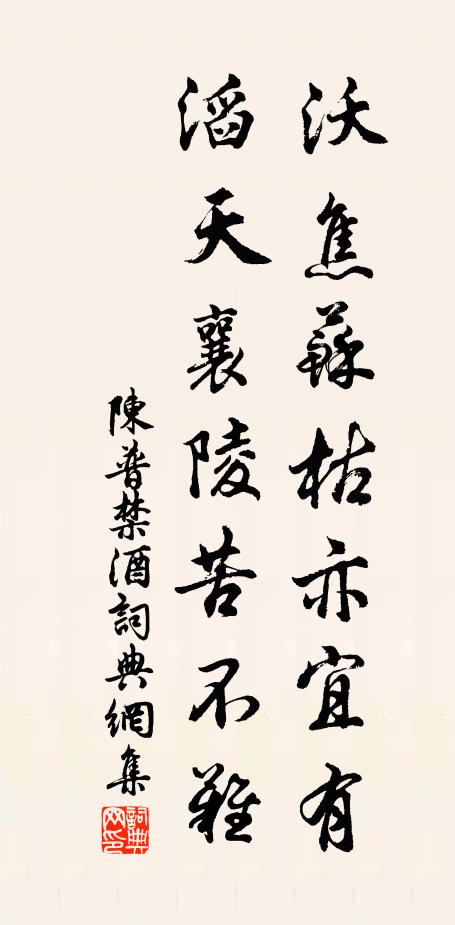 沃焦蘇枯亦宜有
滔天襄陵苦不難
陳普禁酒詞典網集
詞典網印